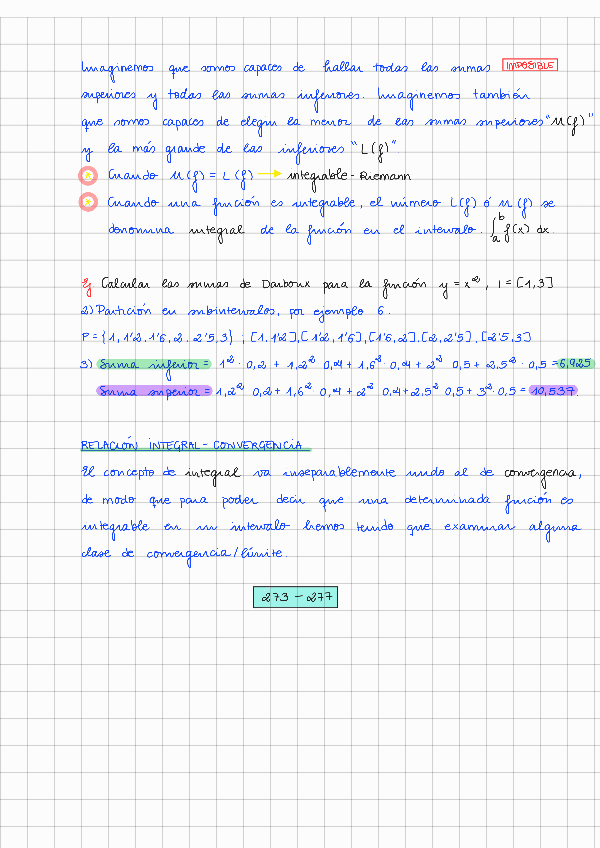 Imaginemos que somos capaces de hallar todas las sumas IMPOSIBLE
superiores y todas las sumas inferiores. Imaginemos también
que somos capaces de elegir la menor de las sumas superiores "U(f)"
y la más grande de las inferiores "L(f)"
Cuando U(f) = L(f) → integrable-Riemann
Cuando una función es integrable, el número L(f) ó U(f) se
denomina integral de la función en el intervalo. ∫_a^b f(x) dx.
Ej Calcular las sumas de Darboux para la función y = x², I = [1,3]
2) Partición en subintervalos, por ejemplo 6.
P = {1, 1'2, 1'6, 2, 2'5, 3} ; [1,1'2], [1'2, 1'6], [1'6, 2], [2, 2'5], [2'5, 3]
3) Suma inferior = 1² · 0,2 + 1,2² 0,4 + 1,6² 0,4 + 2² 0,5 + 2,5² · 0,5 = 6,925
Suma superior = 1,2² 0,2 + 1,6² 0,4 + 2² 0,4 + 2,5² 0,5 + 3² 0,5 = 10,537.
RELACIÓN INTEGRAL-CONVERGENCIA
El concepto de integral va inseparablemente unido al de convergencia,
de modo que para poder decir que una determinada función es
integrable en un intervalo hemos tenido que examinar alguna
clase de convergencia/límite.
273 - 277